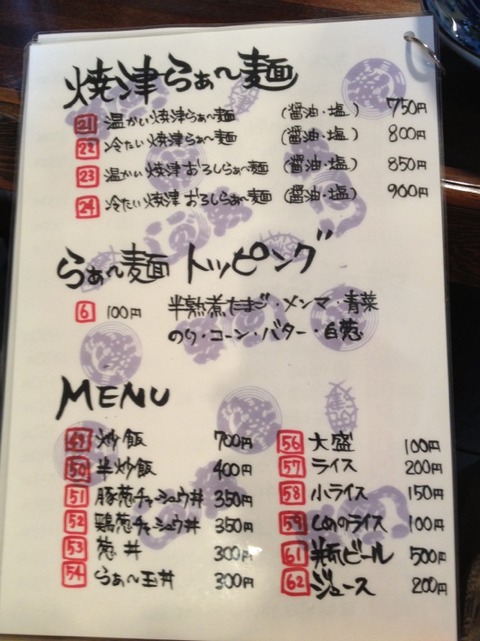 焼津らぁ〜麺
21 温かい焼津らぁ〜麺 (醤油・塩) 750円
22 冷たい焼津らぁ〜麺 (醤油・塩) 800円
23 温かい焼津おろしらぁ〜麺 (醤油・塩) 850円
24 冷たい焼津おろしらぁ〜麺 (醤油・塩) 900円
らぁ〜麺 トッピング
6 100円 半熟煮たまご・メンマ・青菜
のり・コーン・バター・白葱
MENU
49 炒飯 700円
50 半炒飯 400円
51 豚葱チャーシュウ丼 350円
52 鶏葱チャーシュウ丼 350円
53 葱丼 300円
54 らぁ〜玉丼 300円
56 大盛 100円
57 ライス 200円
58 小ライス 150円
59 〆めのライス 100円
61 ビール 500円
62 ジュース 200円